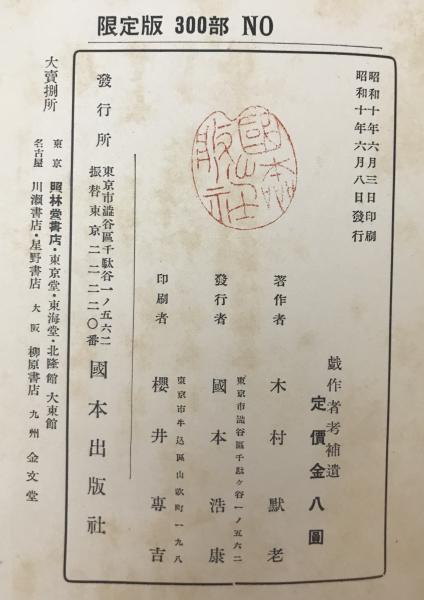 限定版 300部 NO
昭和十年六月三日印刷
昭和十年六月八日發行
戯作者考補遺
定價金八圓
著作者 木村默老
東京市澁谷區千駄ヶ谷一ノ五六二
發行者 國本浩康
東京市牛込區山吹町一九八
印刷者 櫻井專吉
國本出版社
發行所
東京市澁谷區千駄谷一ノ五六二
振替東京二二二二〇番
國本出版社
大賣捌所
東京 照林堂書店・東京堂・東海堂・北隆館 大東館
名古屋 川瀨書店・星野書店 大阪 柳原書店 九州 金文堂